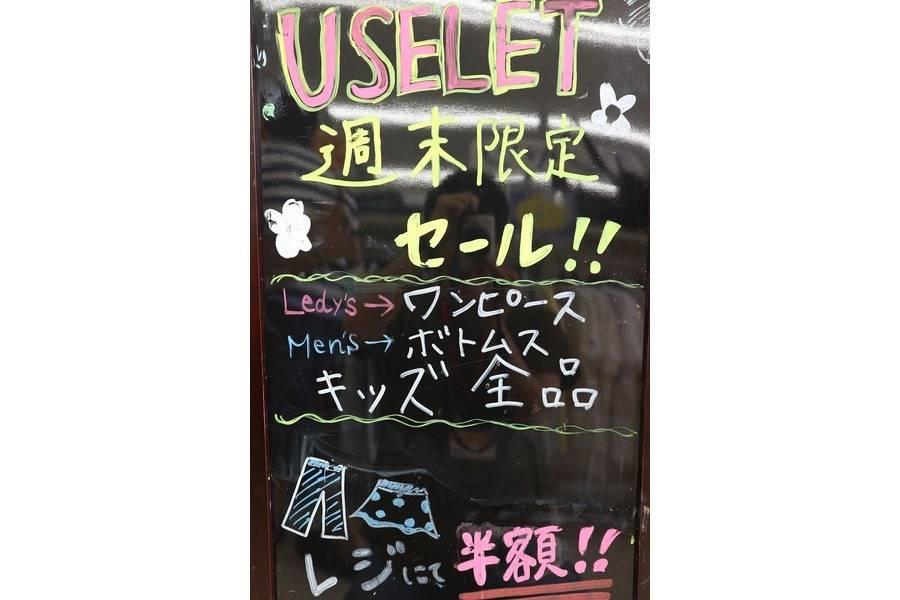 USELET
週末限定
セール!!
Ledy's→ワンピース
Men's→ボトムス
キッズ 全品
レジにて 半額!!